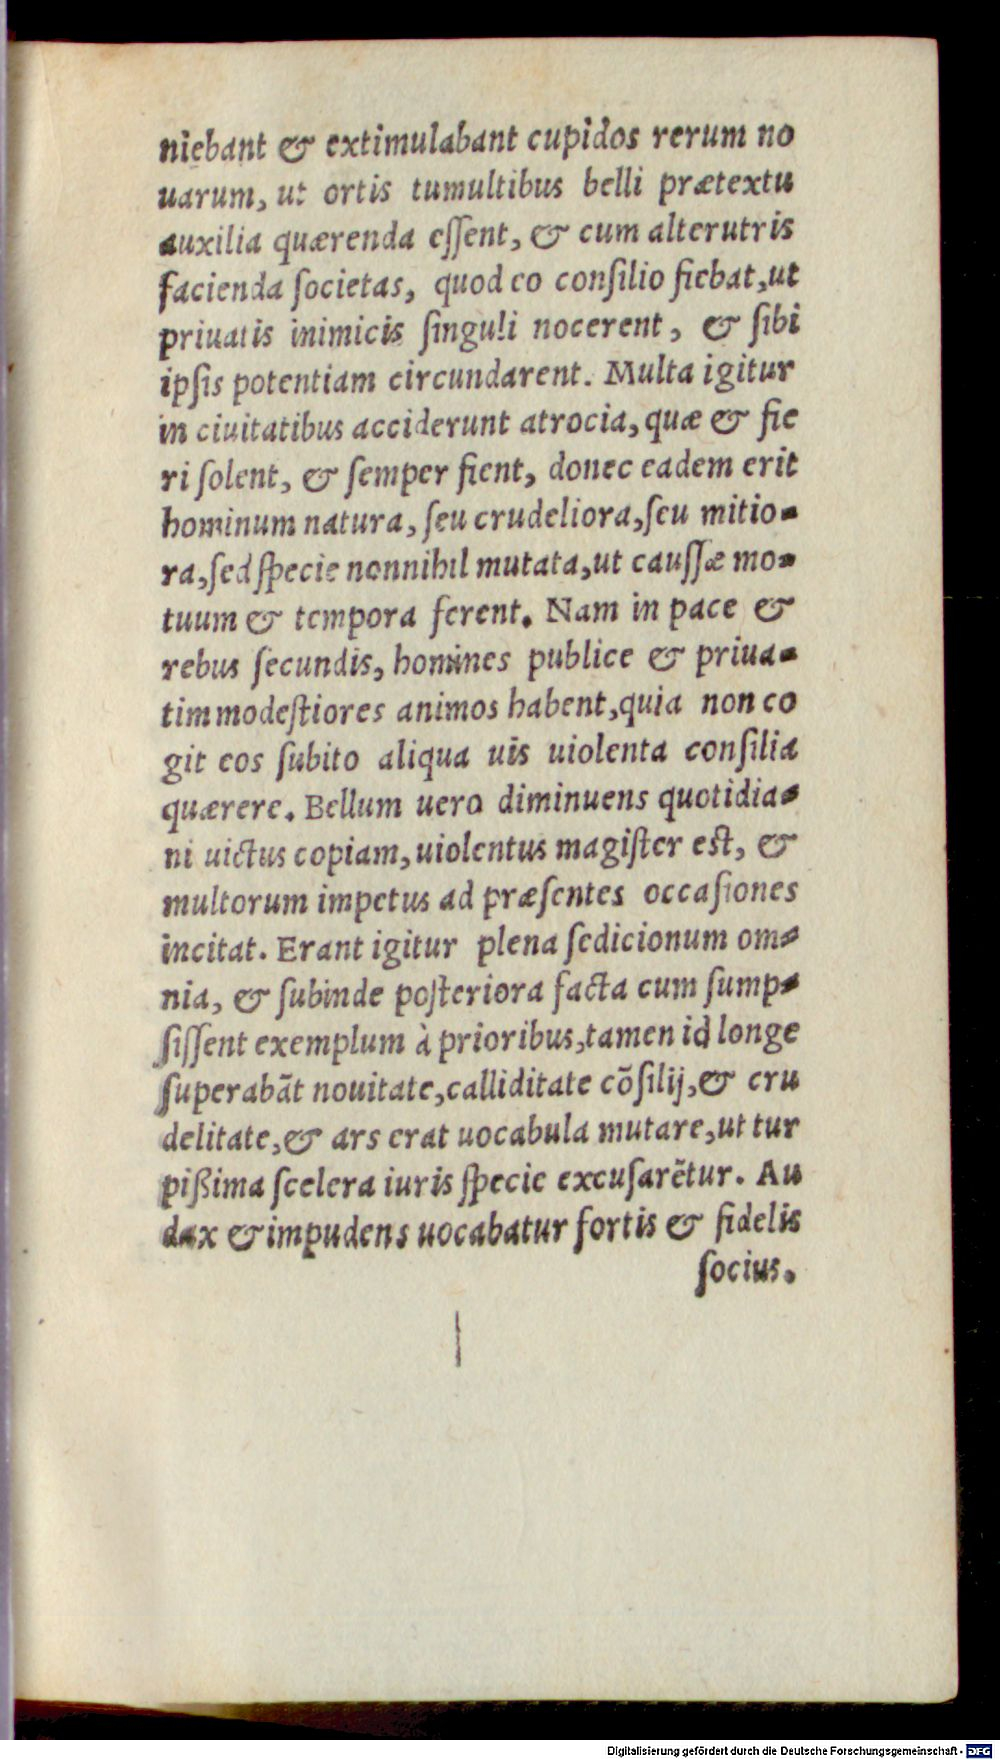 niebant & extimulabant cupidos rerum no
uarum, ut ortis tumultibus belli prætextu
auxilia quærenda eſſent, & cum alterutris
facienda ſocietas, quod eo conſilio fiebat, ut
priuatis inimicis ſinguli nocerent, & ſibi
ipſis potentiam circundarent. Multa igitur
in ciuitatibus acciderunt atrocia, quæ & fie
ri ſolent, & ſemper fient, donec eadem erit
hominum natura, ſeu crudeliora, ſeu mitio-
ra, ſed ſpecie nonnihil mutata, ut cauſſæ mo-
tuum & tempora ferent. Nam in pace &
rebus ſecundis, homines publice & priua-
tim modeſtiores animos habent, quia non co
git eos ſubito aliqua uis uiolenta conſilia
quærere. Bellum uero diminuens quotidia-
ni uictus copiam, uiolentus magiſter eſt, &
multorum impetus ad præſentes occaſiones
incitat. Erant igitur plena ſedicionum om-
nia, & ſubinde poſteriora facta cum ſump-
ſiſſent exemplum à prioribus, tamen id longe
ſuperabāt nouitate, calliditate cōſilij, & cru
delitate, & ars erat uocabula mutare, ut tur
pißima ſcelera iuris ſpecie excuſarētur. Au
dax & impudens uocabatur fortis & fidelis
ſocius.
Digitalisierung gefördert durch die Deutsche Forschungsgemeinschaft - DFG